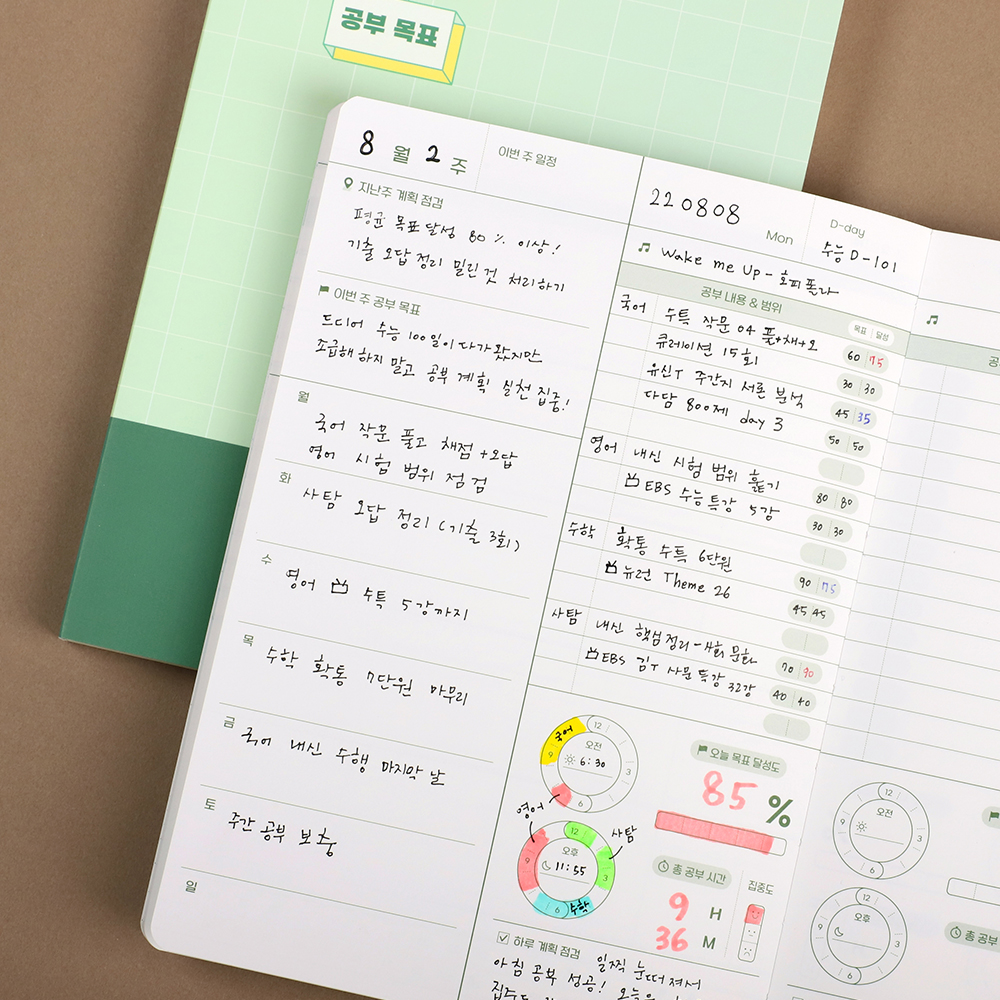 공부 목표
8 월 2 주
이번 주 일정
지난주 계획 점검
평균 목표 달성 80 % 이상!
기출 오답 정리 밀린 것 처리하기
이번 주 공부 목표
드디어 수능 100일이 다가왔지만
조급해 하지 말고 공부 계획 실천 집중!
월
국어 작문 풀고 채점 + 오답
영어 시험 범위 점검
화
사탐 오답 정리 (기출 3회)
수
영어 수특 5강까지
목
수학 확통 7단원 마무리
금
국어 내신 수행 마지막 날
토
주간 공부 보충
일
220808
Mon
D-day
수능 D-101
Wake me up - 호피폴라
공부 내용 & 범위
목표 달성
국어 수특 작문 04 풀+채+오 60 75
큐레이션 15회 30 30
유신T 주간지 서론 분석 45 35
다담 800제 day 3 50 50
영어 내신 시험 범위 훑기 80 80
EBS 수능특강 5강 30 30
수학 확통 수특 6단원 90 75
뉴런 Theme 26 45 45
사탐 내신 핵심정리 - 사회 문화 70 30
EBS 김T 사문 특강 32강 40 40
국어
12
오전
9
3
6:30
6
영어
사탐
12
오후
9
3
11:55
6
수학
오늘 목표 달성도
85 %
총 공부 시간
9 H
36 M
집중도
하루 계획 점검
일찍 눈떠져서
아침 공부 성공! 오늘은
집중도
12
오전
9
3
6
12
오후
9
3
6
총 공부